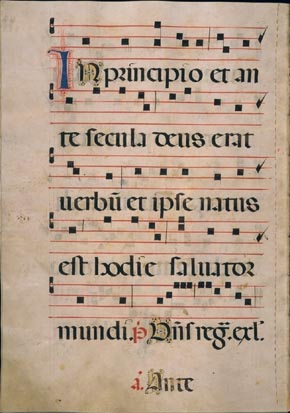 In principio et an
te secula deus erat
uerbū et ipse natus
est hodie saluator
mundi. p̄ Dn̄s reg̃. exl̃.
a. Ante